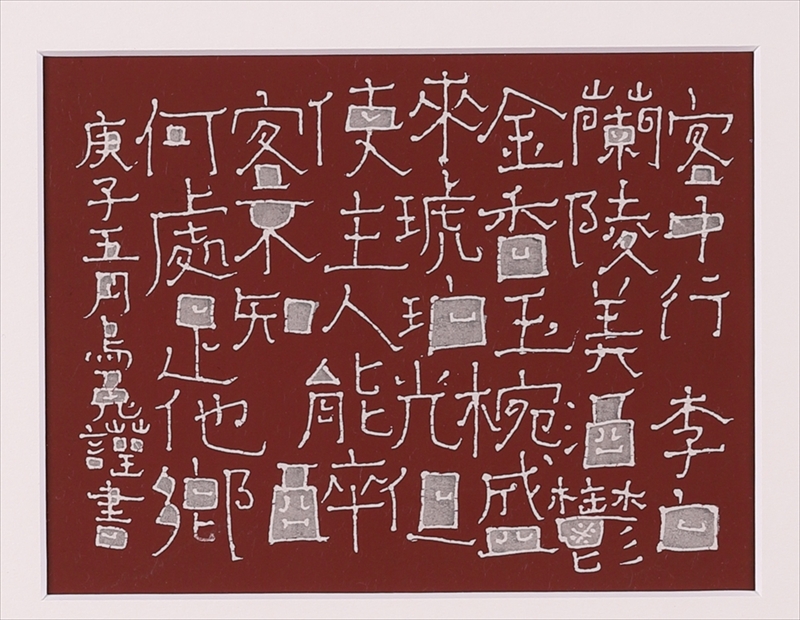 客中行 李白
蘭陵美酒鬱
金香玉椀盛
來琥珀光但
使主人能醉
客不知
何處是他鄉
庚子五月烏兔謹書